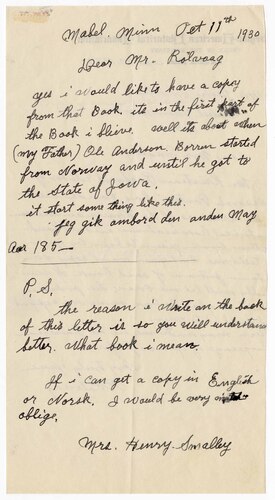 Mabel, Minn Oct 11th 1930
Dear Mr. Rölvaag
yes i would like to have a copy
from that Book. its in the first part of
the Book i blive. well its about when
(my Father) Ole Anderson. Borren started
from Norway and until he got to
the State of Iowa.
it start some thing like this.
jeg gik ambord den anden May
Aar 185—
P.S.
the reason i write on the book
of this letter is so you will understand
better. What book i mean.
If i can get a copy in English
or Norsk. I would be very
oblige.
Mrs. Henry Smalley